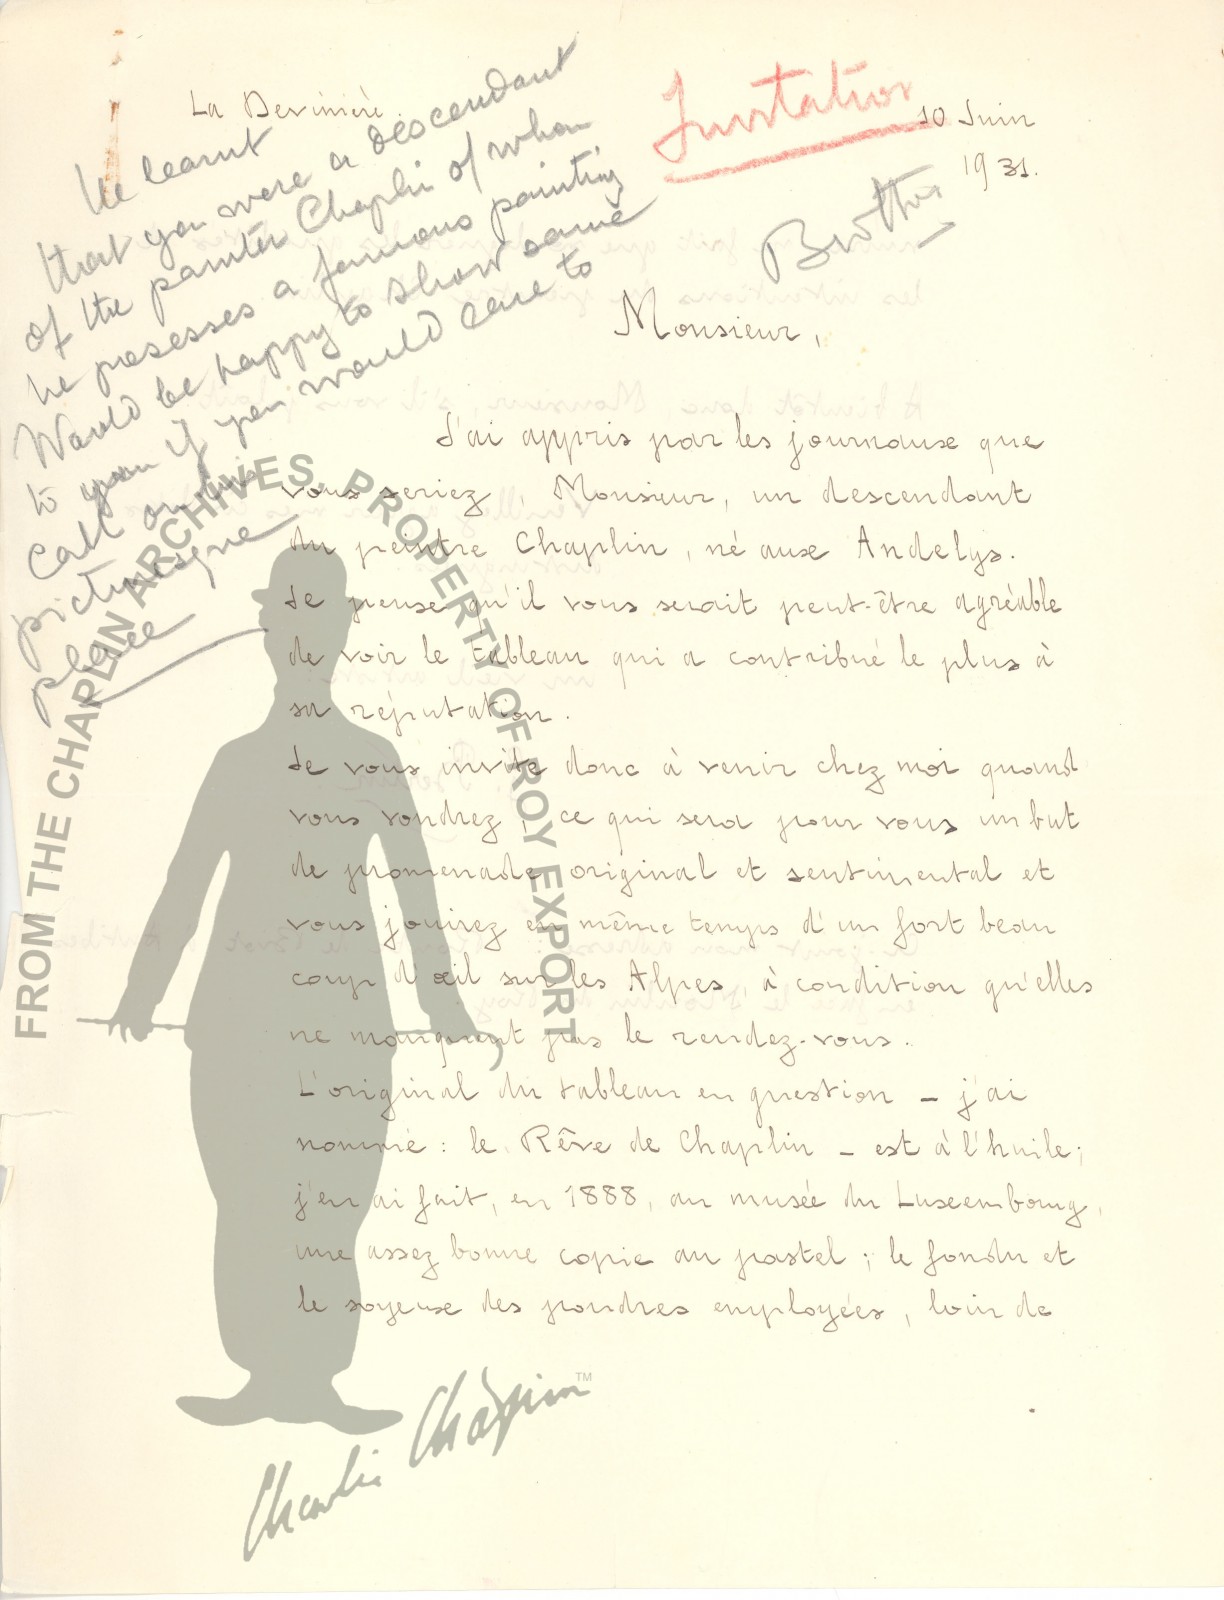 La Devinière.
10 Juin
1931.
Invitation
He learnt
that you were a descendant
of the painter Chaplin of whom
he posesses a famous painting
Would be happy to show same
to you if you would care to
call on his
picturesque
place
Monsieur,
J'ai appris par les journaux que
vous seriez, Monsieur, un descendant
du peintre Chaplin, né aux Andelys.
Je pense qu'il vous serait peut-être agréable
de voir le tableau qui a contribué le plus à
sa réputation.
Je vous invite donc à venir chez moi quand
vous voudrez, ce qui sera pour vous un but
de promenade original et sentimental et
vous jouirez en même temps d'un fort beau
coup d'œil sur les Alpes, à condition qu'elles
ne manquent pas le rendez-vous.
L'original du tableau en question – j'ai
nommé : le Rêve de Chaplin – est à l'huile;
j'en ai fait, en 1888, au musée du Luxembourg,
une assez bonne copie au pastel ; le fondu et
le soyeux des poudres employées, loin de
FROM THE CHAPLIN ARCHIVES. PROPERTY OF ROY EXPORT
Charlie Chaplin™